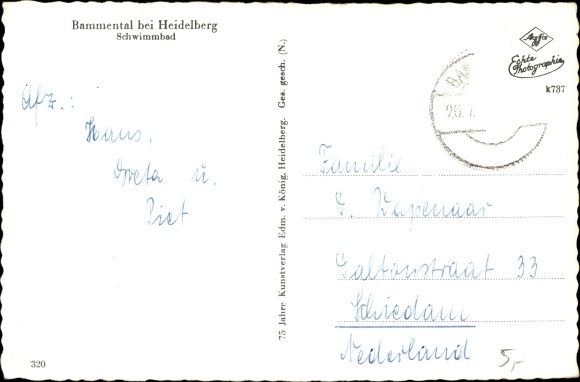 Bammental bei Heidelberg
Schwimmbad
Afz.:
Hans,
Greta u.
Piet
320
75 Jahre Kunstverlag Edm. v. König, Heidelberg. Ges. gesch. (N.)
Agfa
Echte
Photographie
k737
BA
26.
Familie
J. Wapenaar
Galtonstraat 33
Schiedam
Nederland
5,-